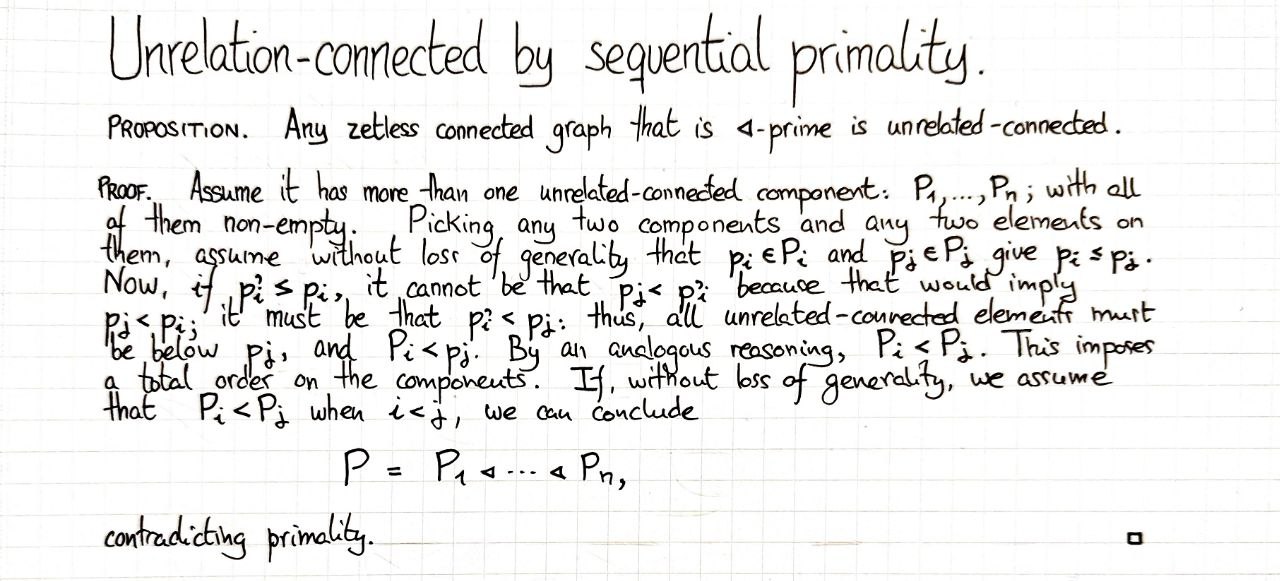 Unrelation-connected by sequential primality.
PROPOSITION. Any zetless connected graph that is ◁-prime is unrelated-connected.
PROOF. Assume it has more than one unrelated-connected component: P₁,...,Pₙ; with all
of them non-empty. Picking any two components and any two elements on
them, assume without loss of generality that pᵢ ∈ Pᵢ and pⱼ ∈ Pⱼ give pᵢ ≤ pⱼ.
Now, if pᵢ' ≤ pᵢ, it cannot be that pⱼ < pᵢ' because that would imply
pⱼ < pᵢ; it must be that pᵢ' < pⱼ: thus, all unrelated-connected elements must
be below pⱼ, and Pᵢ < pⱼ. By an analogous reasoning, Pᵢ < Pⱼ. This imposes
a total order on the components. If, without loss of generality, we assume
that Pᵢ < Pⱼ when i < j, we can conclude
P = P₁ ◁ ... ◁ Pₙ,
contradicting primality.
□